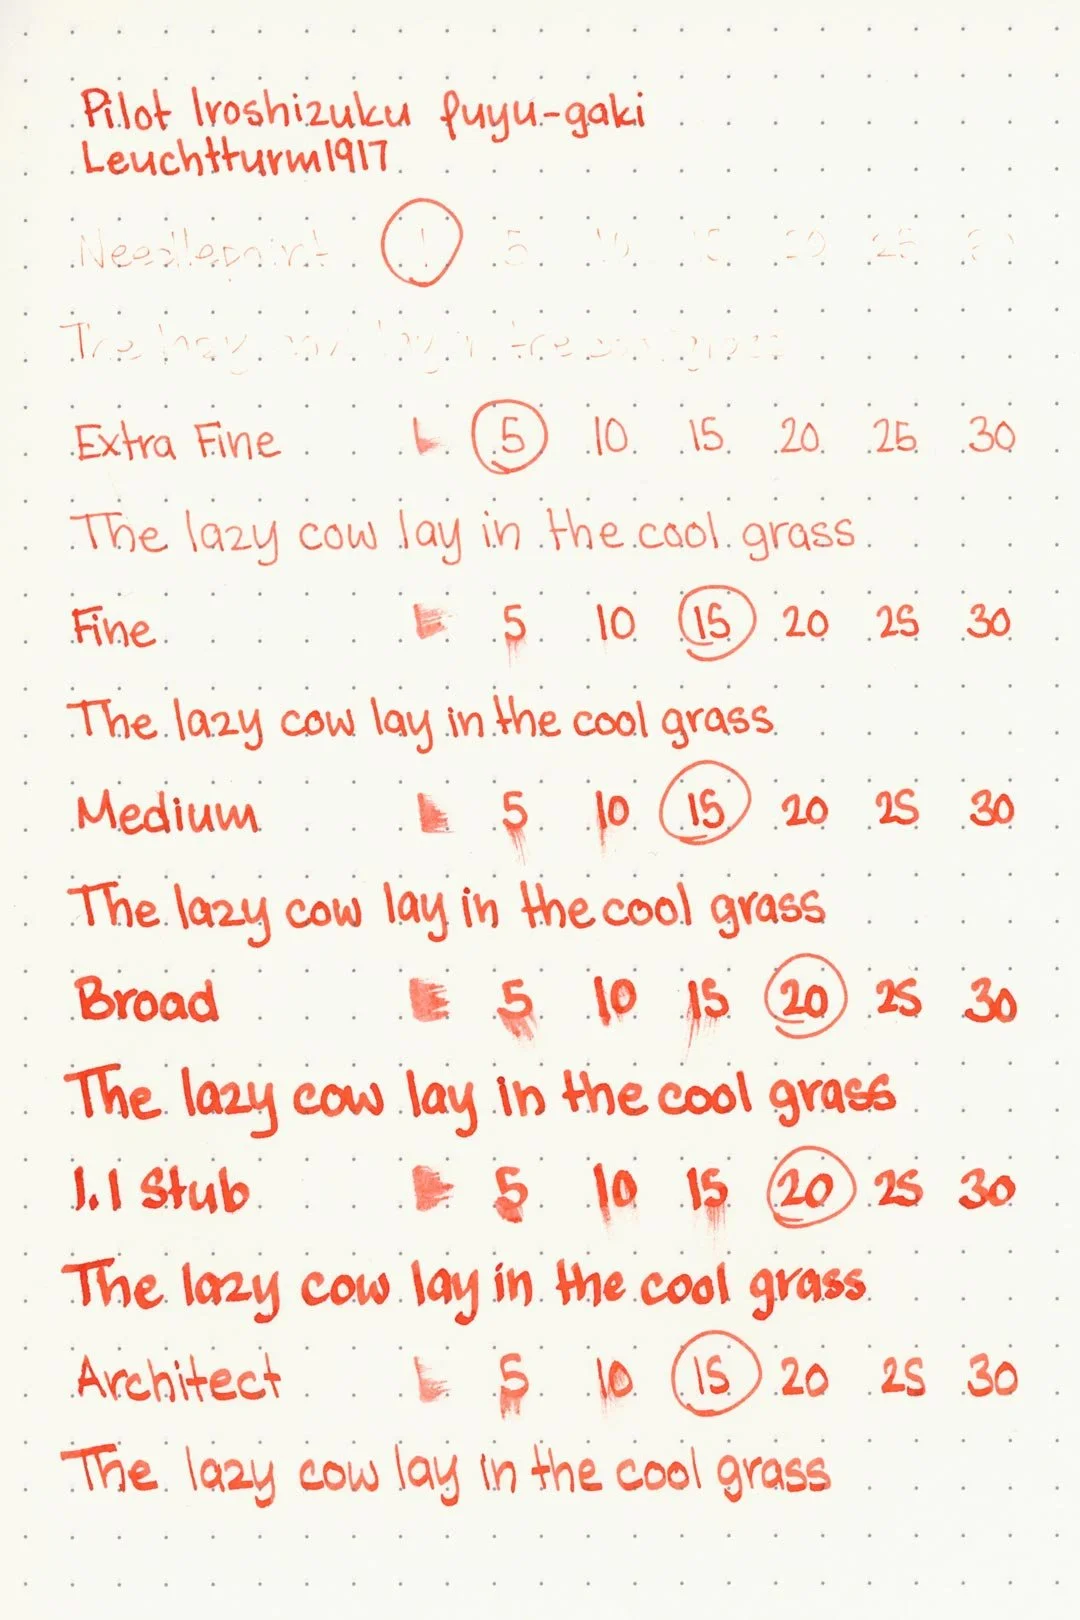 Pilot Iroshizuku fuyu-gaki
Leuchtturm1917
Needlepoint 1 5 10 15 20 25 30
The lazy cow lay in the cool grass
Extra Fine 1 5 10 15 20 25 30
The lazy cow lay in the cool grass
Fine 1 5 10 15 20 25 30
The lazy cow lay in the cool grass
Medium 1 5 10 15 20 25 30
The lazy cow lay in the cool grass
Broad 5 10 15 20 25 30
The lazy cow lay in the cool grass
1.1 Stub 5 10 15 20 25 30
The lazy cow lay in the cool grass
Architect 1 5 10 15 20 25 30
The lazy cow lay in the cool grass